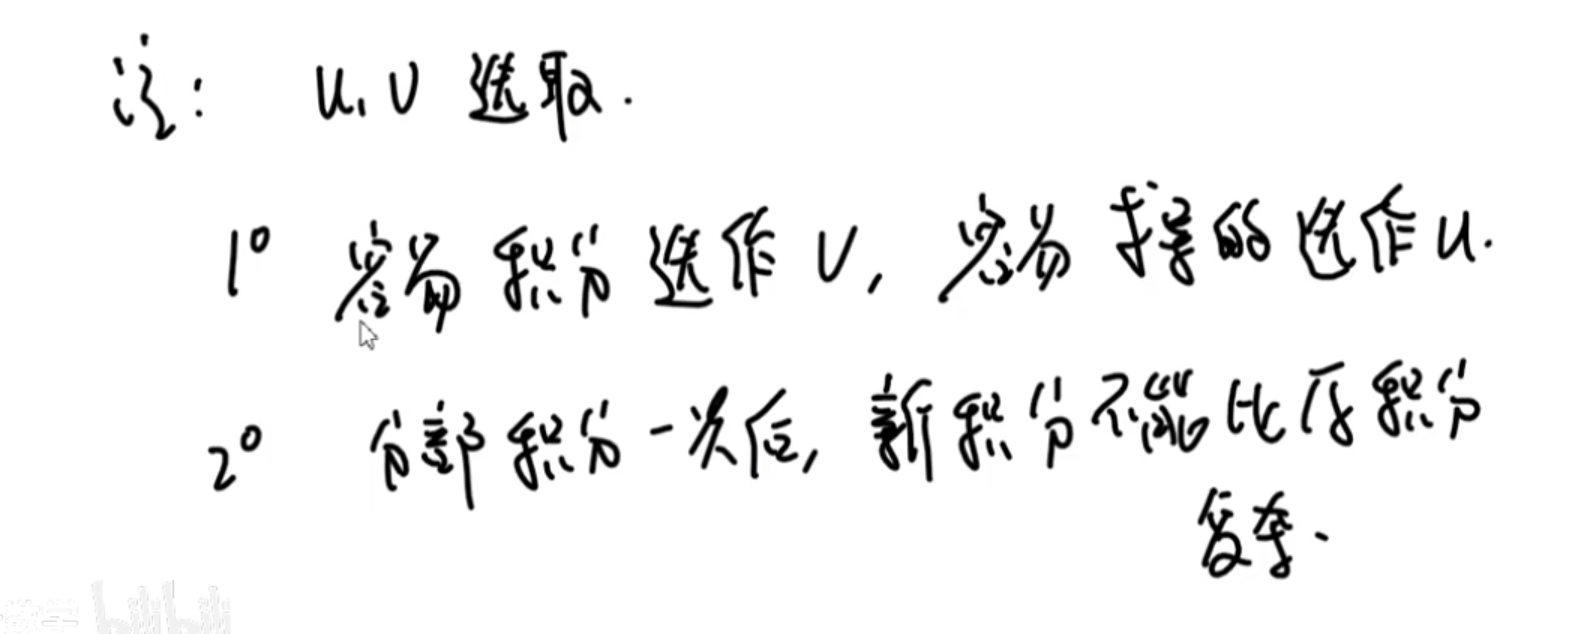 注: u, v 选取.
1° 容易积分选作 v, 容易求导的选作 u.
2° 分部积分一次后, 新积分不能比原积分
复杂.
数学 bilibili